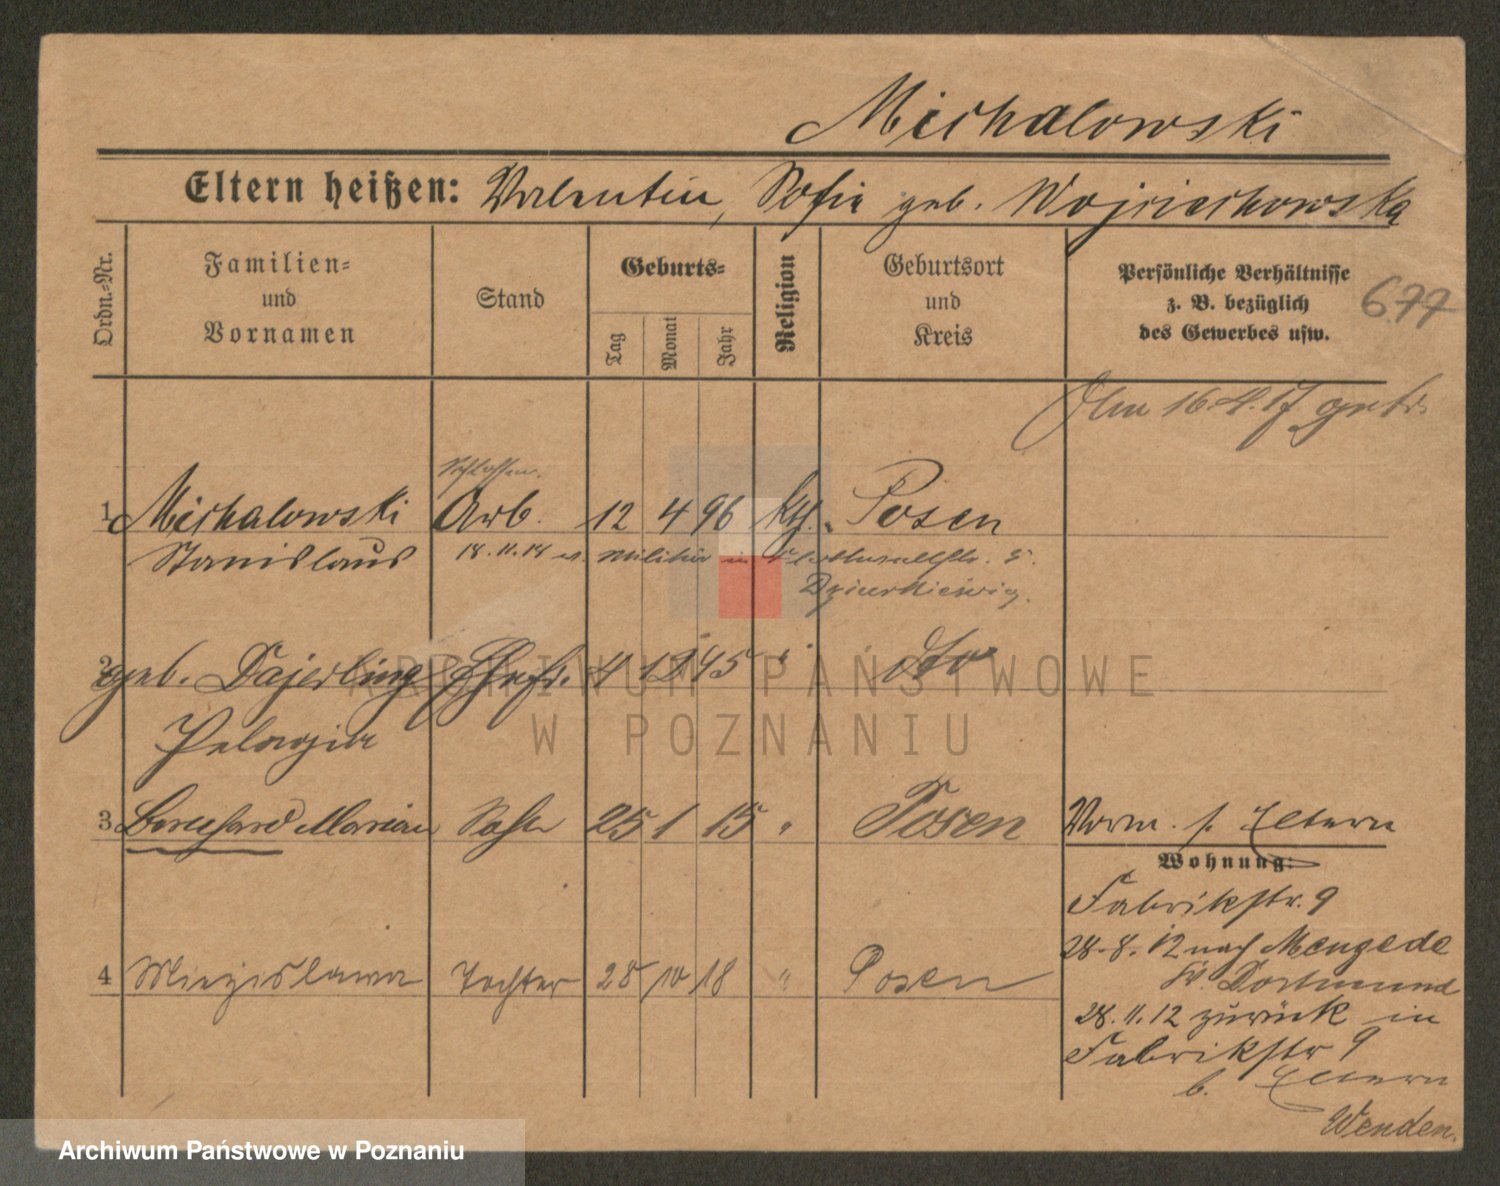 Michalowski
Eltern heißen: Valentin, Sofie geb. Wojciechowska
Ordn.-Nr.
Familien-
und
Vornamen
Stand
Geburts-
Tag
Monat
Jahr
Religion
Geburtsort
und
Kreis
Persönliche Verhältnisse
z. B. bezüglich
des Gewerbes usw.
677
16.4.17 getr.
Schlosser.
1 Michalowski Arb. 12 4 96 kth. Posen
Stanislaus
18.11.18 Militär in
2 geb. Dajerling Ehefr. 4 12 95 " dto
Pelagia
3 Bernhard Marian Sohn 25 1 15 " Posen
Vorm. s. Eltern
Wohnung:
Fabrikstr. 9
28.8.12 nach Mengede
Kr. Dortmund
4 Miezislawa Tochter 28 10 18 " Posen
28.11.12 zurück in
Fabrikstr 9
b. Eltern
Wenden.
ARCHIWUM PAŃSTWOWE
W POZNANIU
Archiwum Państwowe w Poznaniu